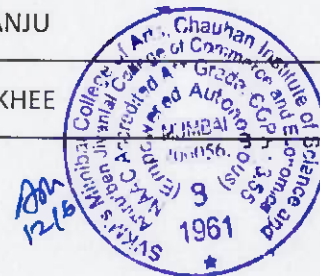 ANJU
KHEE
SVKM's Mithibai College of Arts, Chauhan Institute of Science and
Amrutben Jivanlal College of Commerce and Economics
NAAC Accredited A++ Grade, CGPA: 3.55
(Empowered Autonomous)
MUMBAI
400056.
1961
★
12/6